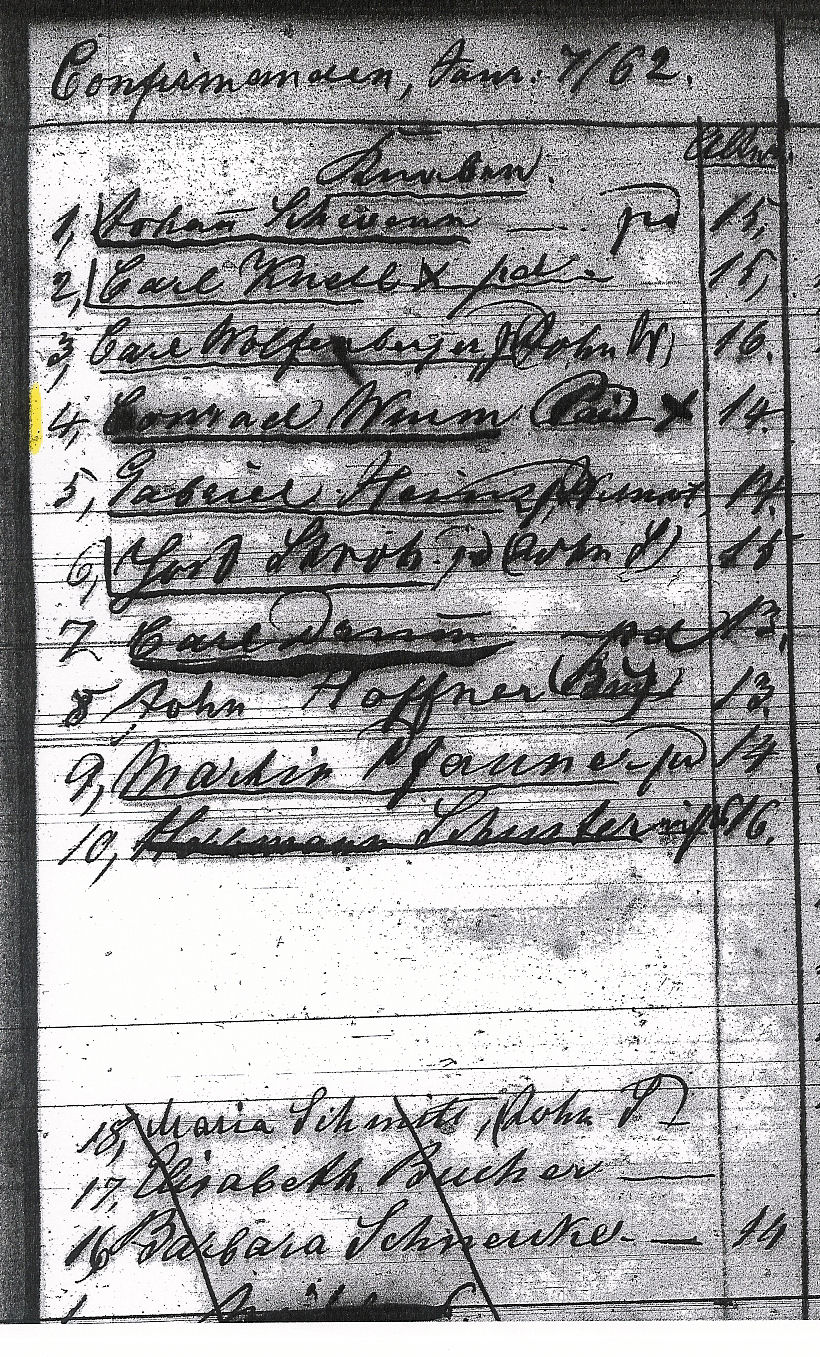 Confirmanden, Janr: 7/62.
Knaben.
Alter.
1, Johan Schwenn — pd 15,
2, Carl Knell X pd — 15,
3, Carl Wolfenberger (John W) 16.
4, Conrad Wurm Paid X 14.
5, Gabriel Heinz 14.
6, Stroh pd (John S) 15
7 Carl Damm pd 13.
8 John Hoffner 13.
9, Martin Pfanner pd 14
10, Schuster 16.
18, Maria Schmitt, (John S)
17, Elisabeth Bucher —
16 Barbara — 14